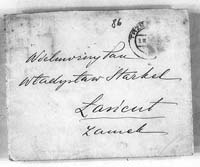 86
Wielmożny Pan
Władysław Starkel
Łańcut
Zamek